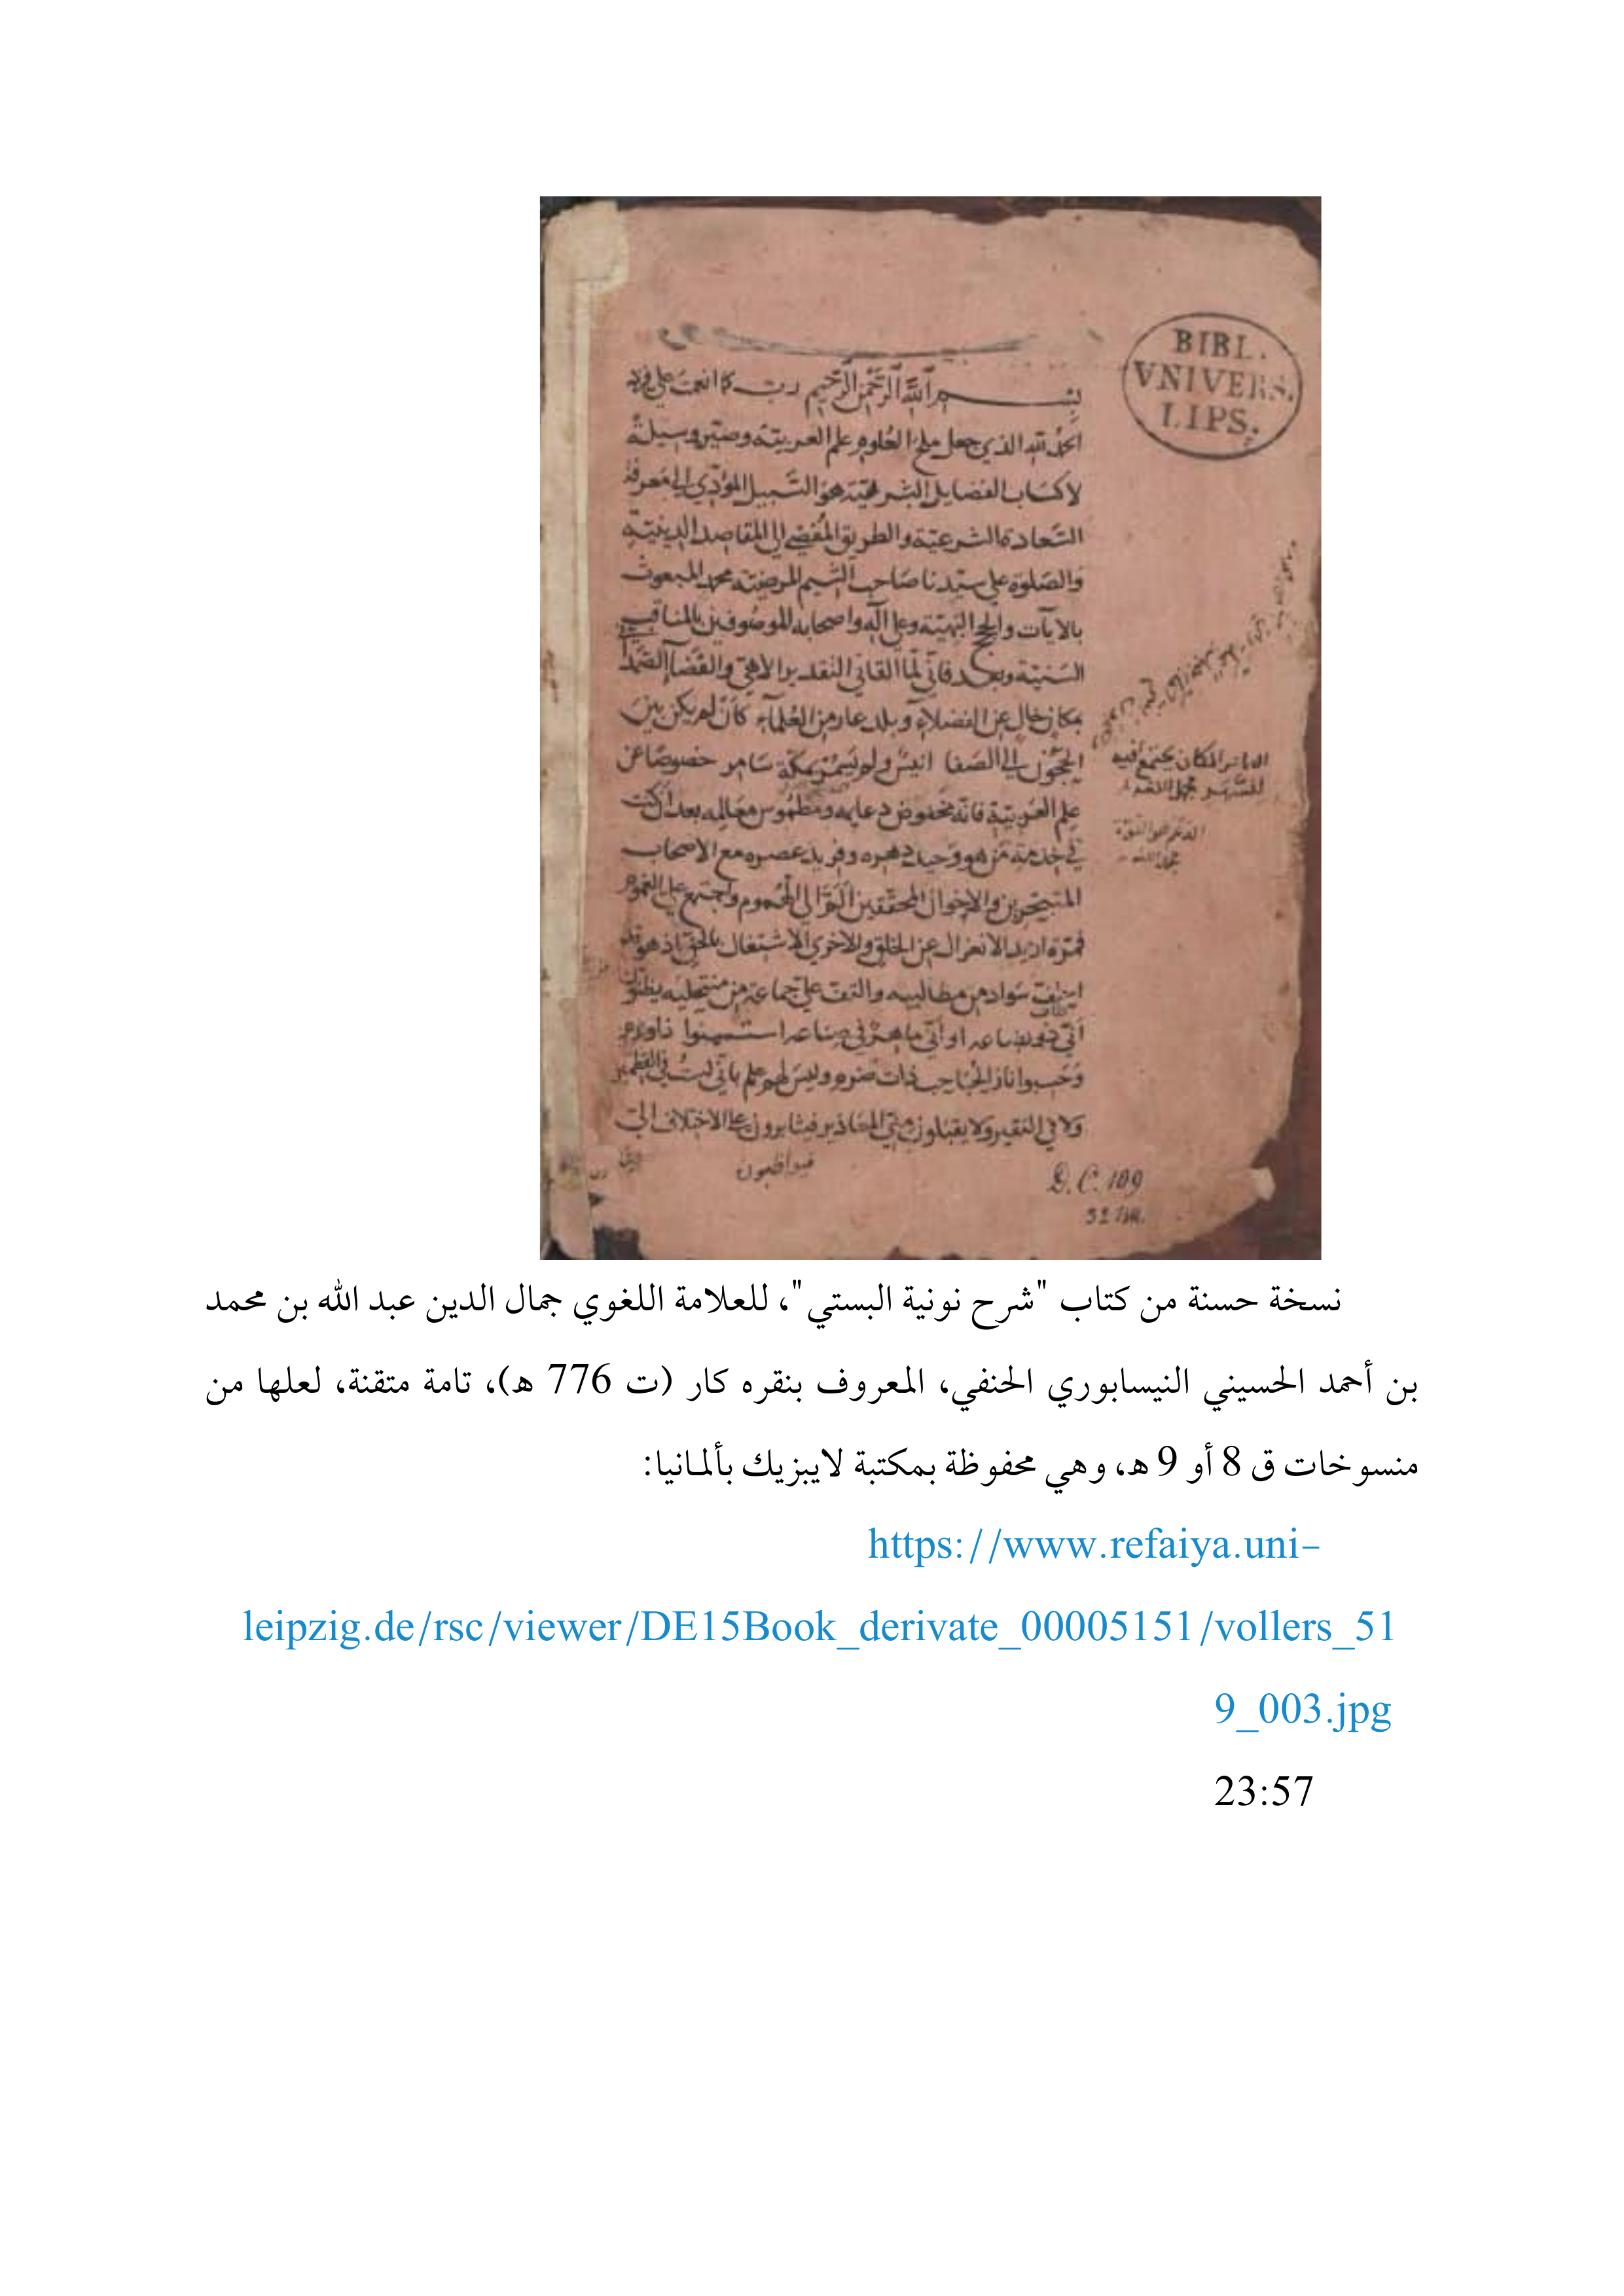 BIBL.
VNIVERS.
LIPS.
بسم الله الرحمن الرحيم رب كما انعمت على فزد
الحمد لله الذي جعل ملح العلوم علم العربية وصير وسيلة
لاكتساب الفضايل الشرعية هو السبيل المؤدي الى معرفة
السعادة الشرعية والطريق المفضي الى المقاصد الدينية
والصلوة على سيدنا صاحب الشيم المرضية محمد المبعوث
بالايات والحجج البهية وعلى آله واصحابه الموصوفين بالمناقب
السنية وبعد فاني لما القاني التقدير الالهي والقضا الصمد
بمكان خال عن الفضلاء وبلد عار من العلماء كان لم يكن بين
الحجون الى الصفا انيس ولم يسمر بمكة سامر خصوصا عن
علم العربية فانه مخفوض دعايمه ومطموس معالمه بعد ان كنت
في خدمة من هو وحيد دهره وفريد عصره مع الاصحاب
المتبحرين والاخوان المحققين الي الهموم واجتمع علي الغموم
فمرة اريد الانعزال عن الخلق والاخرى الاشتغال بالحق اذ هو
سواد من مطالبيه والتف علي جماعة من منتحليه يظنون
اني ذو بضاعه او اني ماهر في صناعه استسمنوا ذا ورم
وحسبوا نار الحباحب ذات ضرم وليس لهم علم باني لست في القطمير
ولا في النقير ولا يقبلون مني المعاذير فيثابرون على الاختلاف الي
فيواظبون
السامر المكان يجتمع فيه
للسمر
D. C. 109
نسخة حسنة من كتاب "شرح نونية البستي"، للعلامة اللغوي جمال الدين عبد الله بن محمد
بن أحمد الحسيني النيسابوري الحنفي، المعروف بنقره كار (ت 776 هـ)، تامة متقنة، لعلها من
منسوخات ق 8 أو 9 هـ، وهي محفوظة بمكتبة لايبزيك بألمانيا:
https://www.refaiya.uni-
leipzig.de/rsc/viewer/DE15Book_derivate_00005151/vollers_51
9_003.jpg
23:57